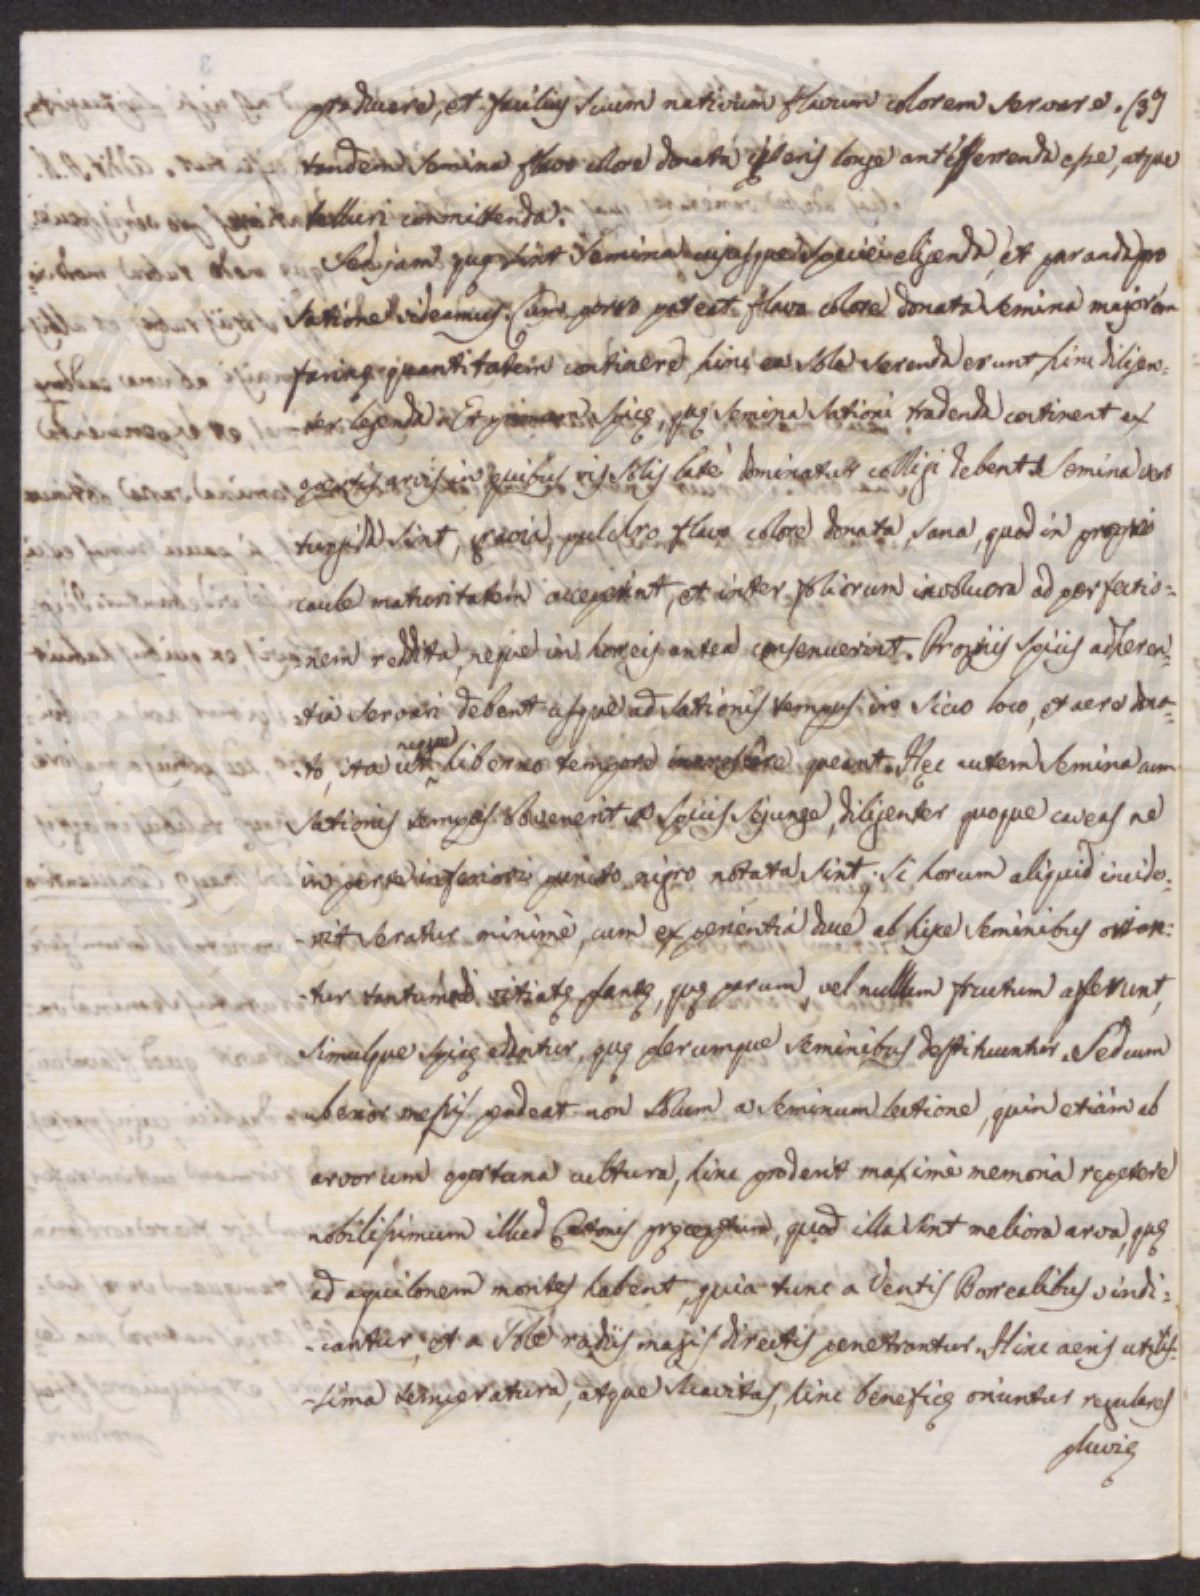 producere, et facilius suum nativum flavum colorem servare. (3º)
tandem semina flavo colore donata cęteris longe antefferenda esse, atque
telluri committenda.
Sed jam quę sint semina cujusque speciei eligenda, et paranda pro
satione videamus. Cum porro pateat flavo colore donata semina majorem
farinę quantitatem continere, hinc ea sola serenda erunt, hinc diligen=
ter legenda. Et primum spicę, quę semina sationi tradenda continent ex
apertis arvis in quibus vis solis late dominatur colligi debent. Semina vero
turgida sint, gravia, pulchro flavo colore donata, sana, quod in proprio
caule maturitatem acceperint, et inter foliorum involucra ad perfectio=
nem reddita, neque in horreis antea consenuerint. Propriis spicis adheren=
tia servari debent usque ad sationis tempus in sicco loco, et aere dona=
to, ita ut neque hiberno tempore queant. Hęc autem semina cum
sationis tempus advenerit a spicis sejunge, diligenter quoque caveas ne
in parte inferiori puncto nigro notata sint. Si horum aliquid incide=
rit seratur minimè, cum experientiâ duce ab hisce seminibus orian=
tur tantum vitiatę plantę, quę parum, vel nullum fructum afferunt,
simulque spicę edantur, quę plerumque seminibus destituuntur. Sed cum
uberior messis pendeat non solum a seminum lectione, quin etiam ab
arvorum oportuna cultura, hinc proderit maximè memoria repetere
nobilissimum illud Catonis pręceptum, quod illa sint meliora arva, quę
ad aquilonem montes habent, quia tunc a ventis Borealibus vindi=
cantur, et a sole radiis magis directis penetrantur. Hinc aeris utilis=
sima temperatura, atque suavitas, hinc beneficę oriuntur regulares
pluvię